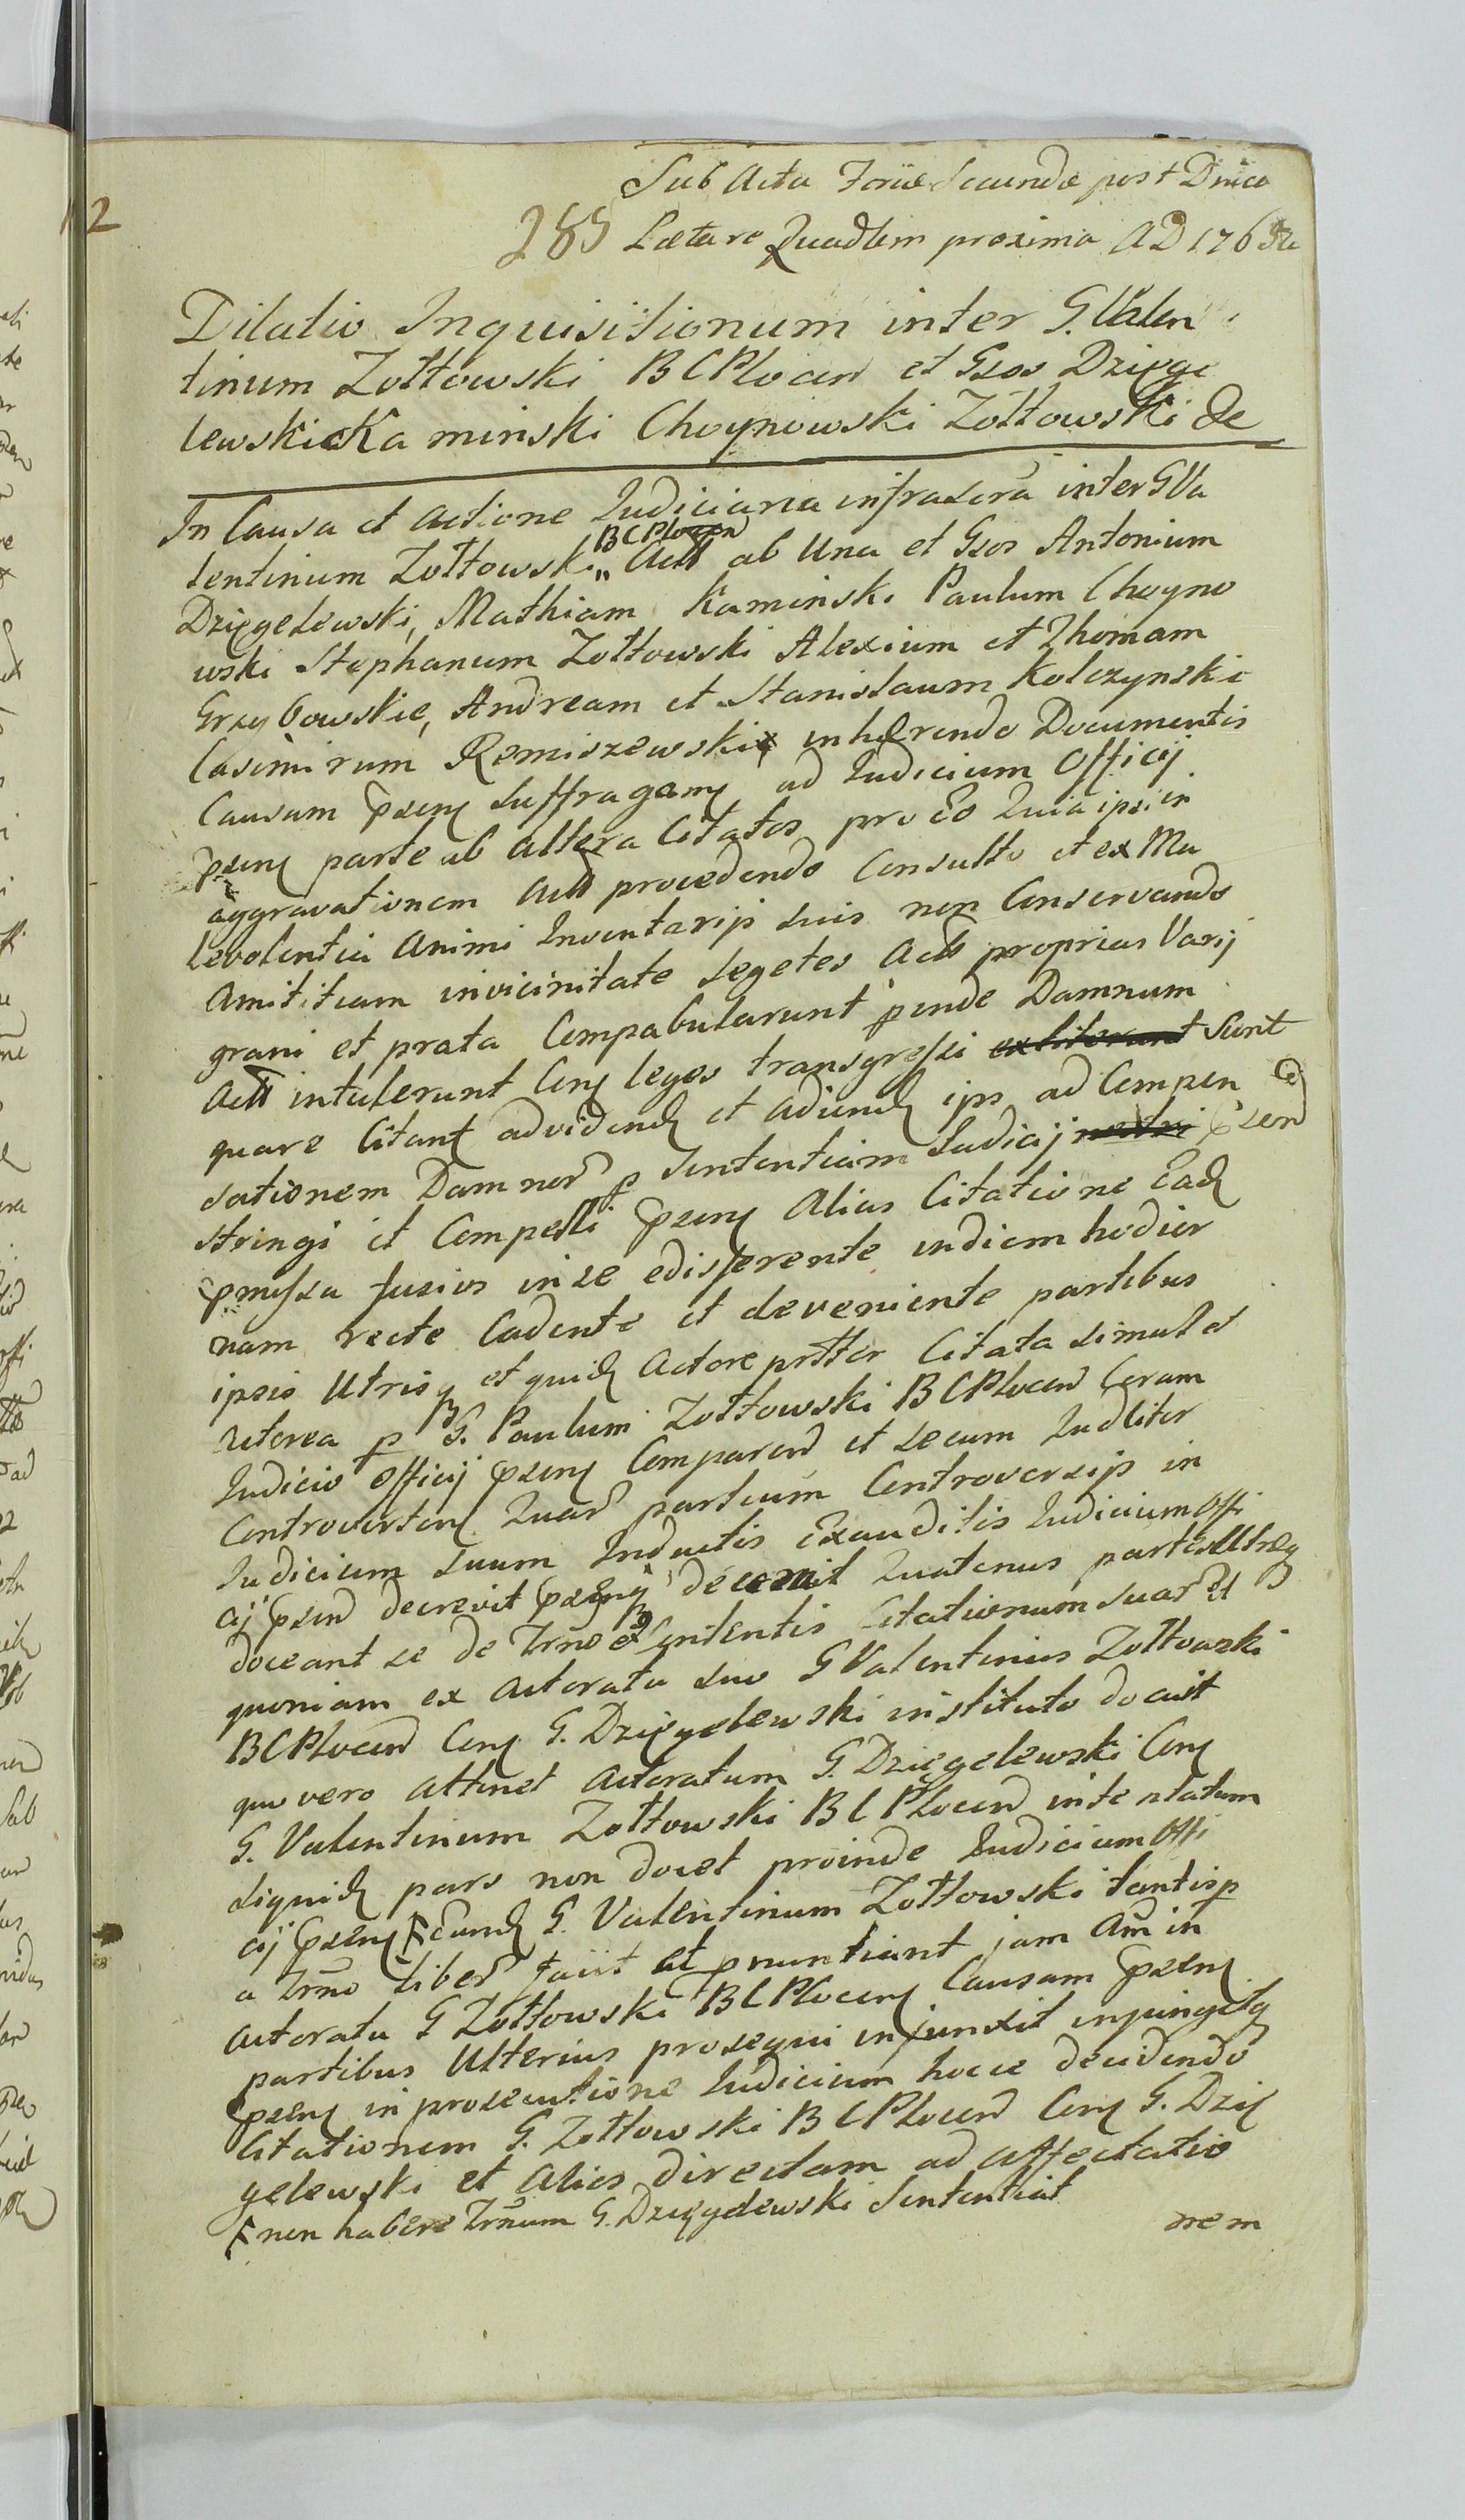 Sub Actu Feriæ Secundæ post Dnica
2
285 Lætare Quadlem proxima AD 176
Dilatio Inquisitionum inter G. Valen
tinum Zołtowski BCPlocen et Gsos Dzięge
lewski Kaminski Choynowski Zołtowski &c
In Causa et Actione Judiciaria infrascra inter GVa
lentinum Zołtowski BCPlocen Actt ab Una et Gsos Antonium
Dzięgelewski, Mathiam Kaminski Paulum Choyno
wski Stephanum Zołtowski Alexium et Thomam
Grzybowskie, Andream et Stanislaum Kolczynskie
Casimirum Remiszewski inhærendo Documentis
Causam psen suffragan ad Judicium Officij
psen parte ab altera Citatos pro Eo Quia ipsi in
aggravationem Actt procedendo Consulto et ex Ma
levolentia Animi Inventarijs suis non Conservando
Amititiam in vicinitate segetes Actt proprias Varij
grani et prata Compabularunt pinde Damnum
Actt intulerunt Con leges transgressi sunt
quare Citant ad vidend et adiend ips ad Compen
sationem Damnor p Sententiam Judicij psen
stringi et Compelli psen Alias Citatione Ead
pmissa fusius in se edisserente in diem hodier
nam recte Cadente et deveniente partibus
ipsis Utrisq et quid Actore prtter Citata simul et
Actorea p G. Paulum Zołtowski BCPlocen Coram
Judicio Officij psen Comparen et secum Judliter
Controverten Quar partium Controversijs in
Judicium suum Inductis Exauditis Judicium Offi
cij psen decrevit psenq decernit Quatenus partes Utræq
doceant se de Trno et Contentis Citationum suar Et
quoniam ex Actoratu suo G Valentinus Zołtowski
BCPlocen Con G. Dzięgelewski instituto docuit
quo vero attinet Actoratum G. Dzięgelewski Con
G. Valentinum Zołtowski BCPlocen intentatum
siquid pars non docet proinde Judicium Offi
cij psen Eund G. Valentinum Zołtowski tantisp
a Trno liber facit et pnuntiant jam Am in
Actoratu G Zołtowski BCPlocen Causam psen
partibus Ulterius prosequi injunxit injungitq
psen in prosecutione Judicium hocce decidendo
Citationem G. Zołtowski BCPlocen Con G. Dzię
gelewski et Alios directam ad Affectatio
non habere Trnum G. Dzięgelewski Sententiat
nem